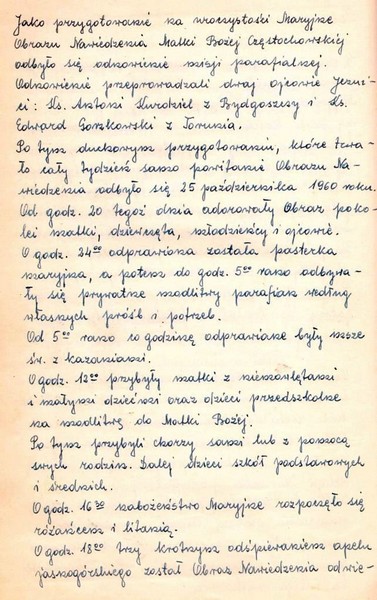 Jako przygotowanie na uroczystości Maryjne
Obrazu Nawiedzenia Matki Bożej Częstochowskiej
odbyło się odnowienie misji parafialnej.
Odnowienie przeprowadzali dwaj ojcowie Jezui-
ci: Ks. Antoni Kurdziel z Bydgoszczy i Ks.
Edward Gorzkowski z Torunia.
Po tym duchowym przygotowaniu, które trwa-
ło cały tydzień samo powitanie Obrazu Na-
wiedzenia odbyło się 25 października 1960 roku.
Od godz. 20 tegoż dnia adorowały Obraz poko-
lei matki, dziewczęta, młodzieńcy i ojcowie.
O godz. 24⁰⁰ odprawiona została pasterka
maryjna, a potem do godz. 5⁰⁰ rano odbywa-
ły się prywatne modlitwy parafian według
własnych próśb i potrzeb.
Od 5⁰⁰ rano co godzinę odprawiane były msze
św. z kazaniami.
O godz. 12⁰⁰ przybyły matki z niemowlętami
i małymi dziećmi oraz dzieci przedszkolne
na modlitwę do Matki Bożej.
Po tym przybyli chorzy sami lub z pomocą
swych rodzin. Dalej dzieci szkół podstawowych
i średnich.
O godz. 16³⁰ nabożeństwo Maryjne rozpoczęło się
różańcem i litanią.
O godz. 18⁰⁰ trzy krotnym odśpiewaniem apelu
jasnogórskiego został Obraz Nawiedzenia odwie-